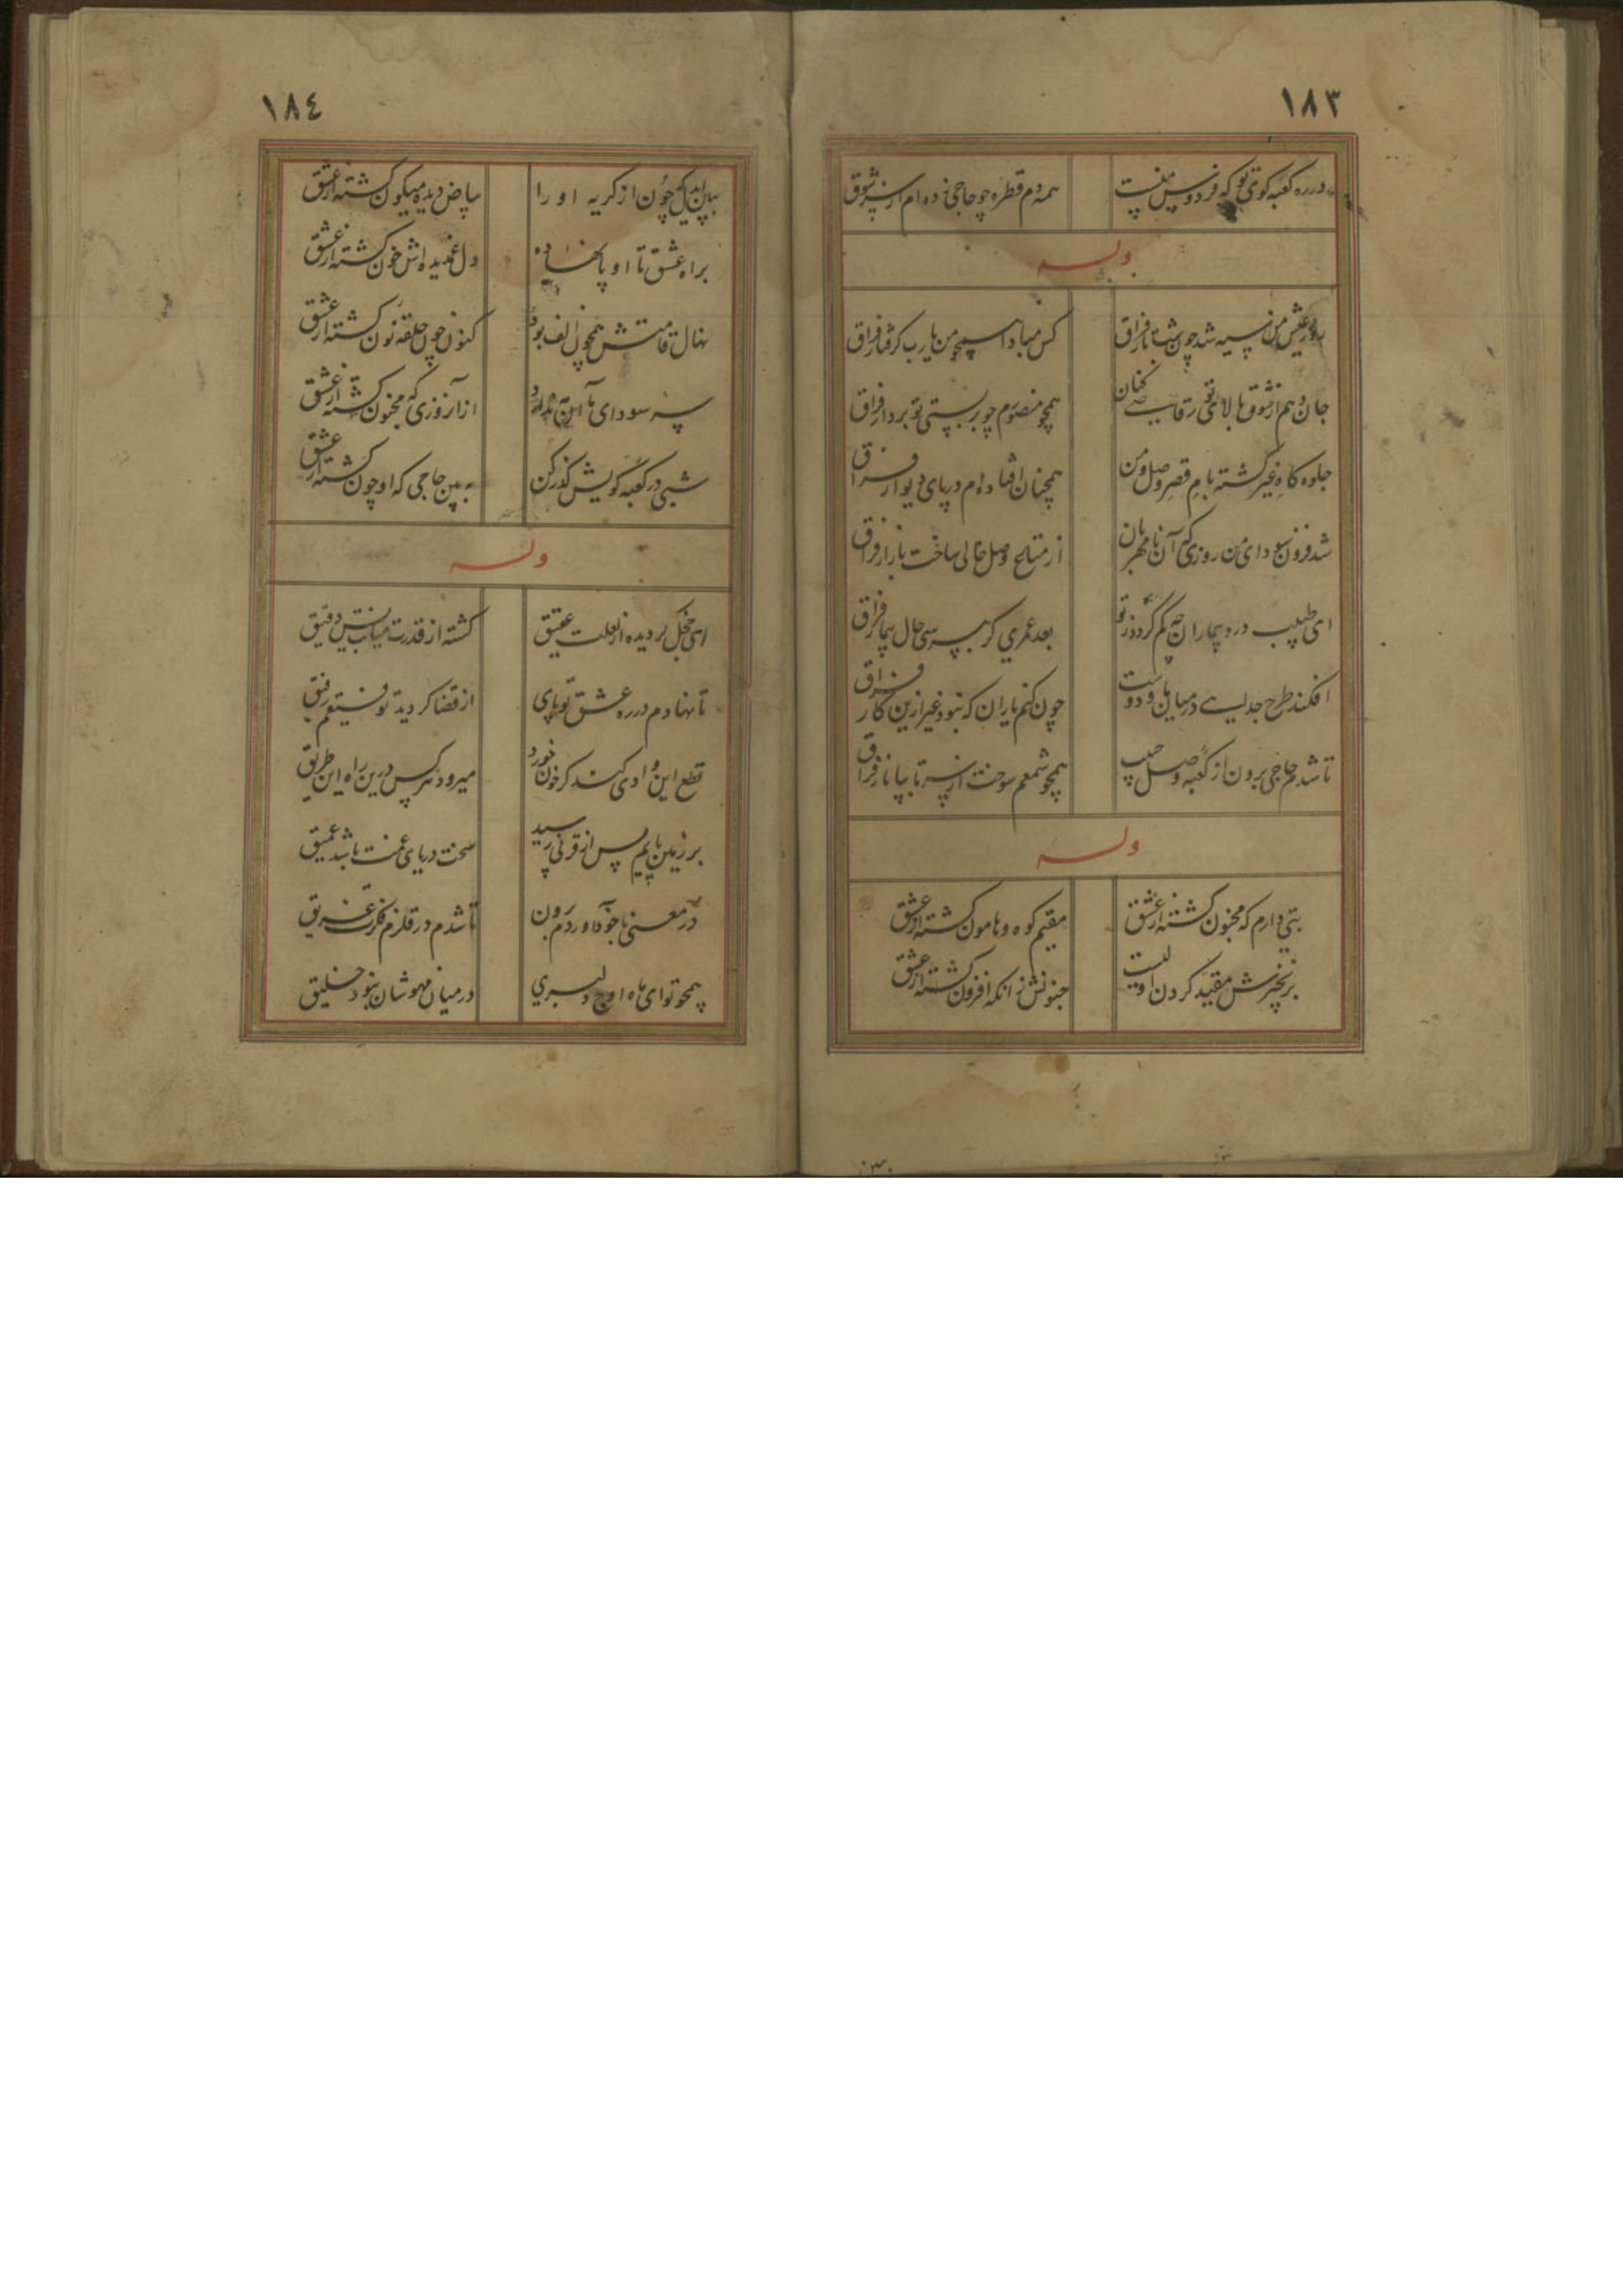 ١٨٣
در ره کعبه کوی تو که فردوس منست
همه دم قطره چو حاجی زده‌ام از سر شوق
وله
روز عیش من سیه شد چون شب تار فراق
کس مبادا همچو من یارب گرفتار فراق
جان دهم از شوق بالای تو رقاصی کنان
همچو منصورم چو بربستی تو بر دار فراق
جلوه کاه غیر گشته بام قصر وصل و من
همچنان افتاده‌ام در پای دیوار فراق
شد فزون سودای من روزی که آن نامهربان
از متاع وصل خالی ساخت بازار فراق
ای طبیب درد بیماران چه کم گردد ز تو
بعد عمری گر بپرسی حال بیمار فراق
افکند طرح جدایی در میان یار و دوست
چون کنم یاران که نبود غیر ازین کار فراق
تا شدم حاجی برون از کعبه وصل حبیب
همچو شمعم سوخت از سر تا بپا نار فراق
وله
بتی دارم که مجنون گشته از عشق
مقیم کوه و هامون گشته از عشق
بزنجیرش مقید کردن اولیست
جنونش زانکه افزون گشته از عشق
١٨٤
ببین کز چون از گریه او را
بیاض دیده میگون گشته از عشق
براه عشق تا او پا نهاده
دل غمدیده‌اش خون گشته از عشق
نهال قامتش همچون الف بود
کنون چون حلقه نون گشته از عشق
سر سودای ما آن
از آن روزی که مجنون گشته از عشق
شبی در کعبه کویش گذر کن
به بین حاجی که او چون گشته از عشق
وله
ای خجل گردیده از لعلت عقیق
گشته از قدرت میانت بس دقیق
تا نهادم در ره عشق تو پای
از قضا گردید توفیقم رفیق
قطع این وادی کند کر خون خورد
میرود هر کس درین راه این طریق
بر زمین پایم پس از قرنی رسید
سخت دریای غمت باشد عمیق
در معنی تا بخود آوردم برون
تا شدم در قلزم فکرت غریق
همچو تو ای ماه اوج دلبری
در میان مهوشان نبود خلیق